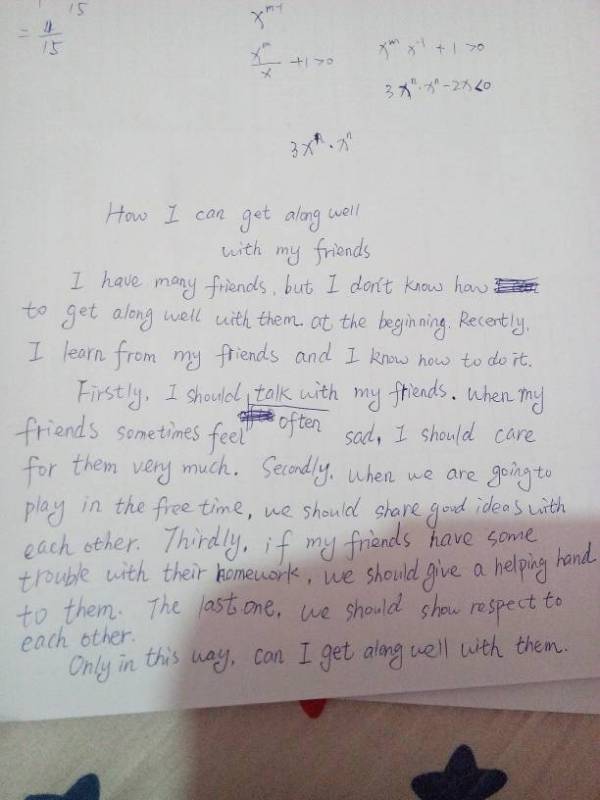 15
= 11/15
x^{m-1}
x^m/x + 1 > 0
x^m x^{-1} + 1 > 0
3x^n · x^n - 2x < 0
3x^n · x^n
How I can get along well
with my friends
I have many friends, but I don't know how
to get along well with them at the beginning. Recently,
I learn from my friends and I know how to do it.
Firstly, I should often talk with my friends. When my
friends sometimes feel sad, I should care
for them very much. Secondly, when we are going to
play in the free time, we should share good ideas with
each other. Thirdly, if my friends have some
trouble with their homework, we should give a helping hand
to them. The last one, we should show respect to
each other.
Only in this way, can I get along well with them.